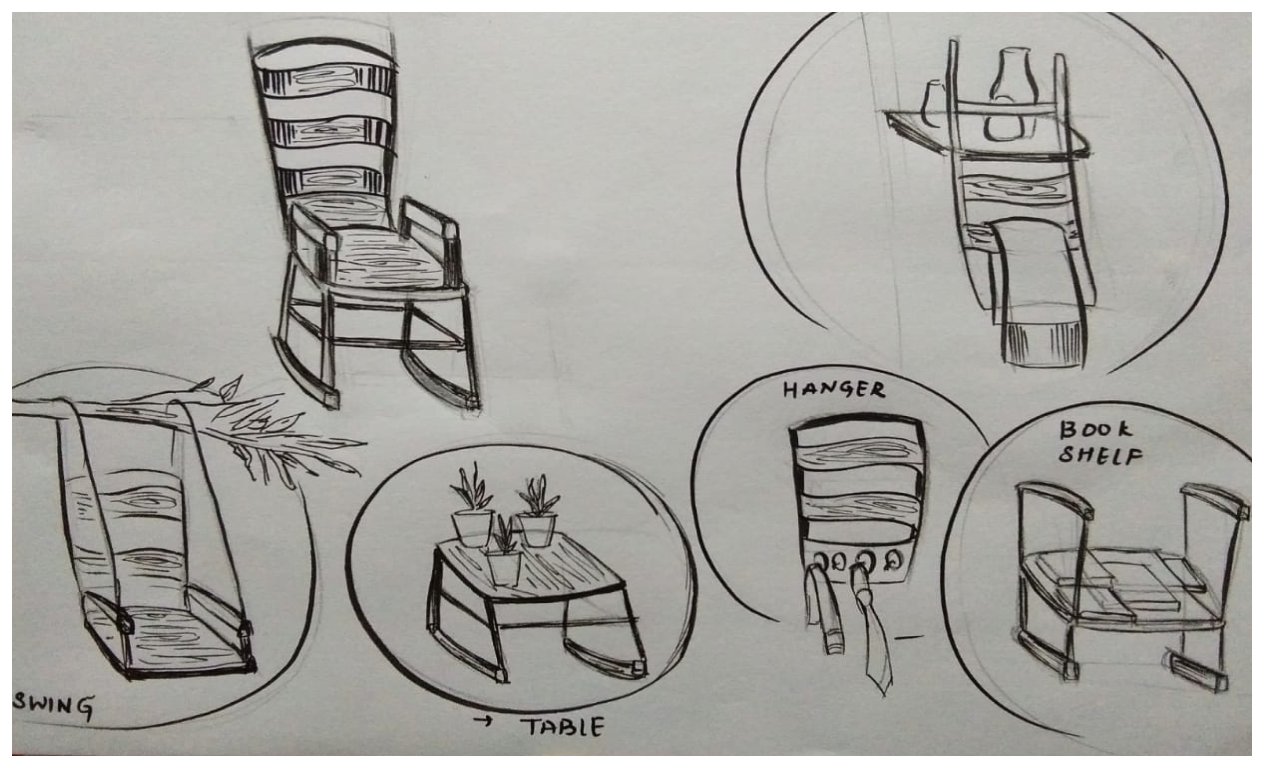 HANGER
BOOK
SHELF
SWING
→ TABLE